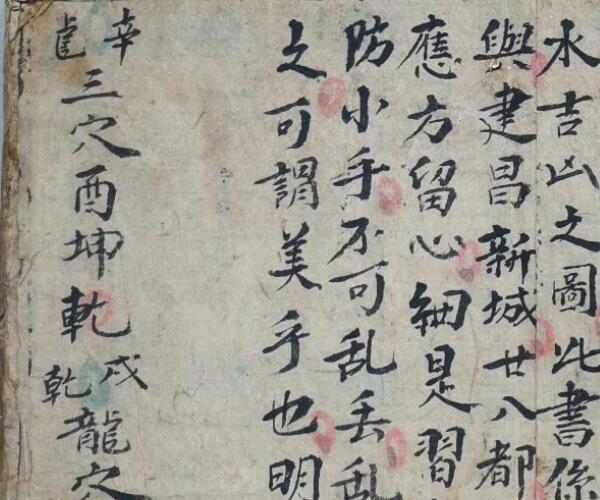 水吉凶之圖此書係
與建昌新城廿八都
應方留心細是習
防小手不可乱丢乱
之可謂美乎也明
辛
龍
三穴酉坤乾
戌
乾
龍穴